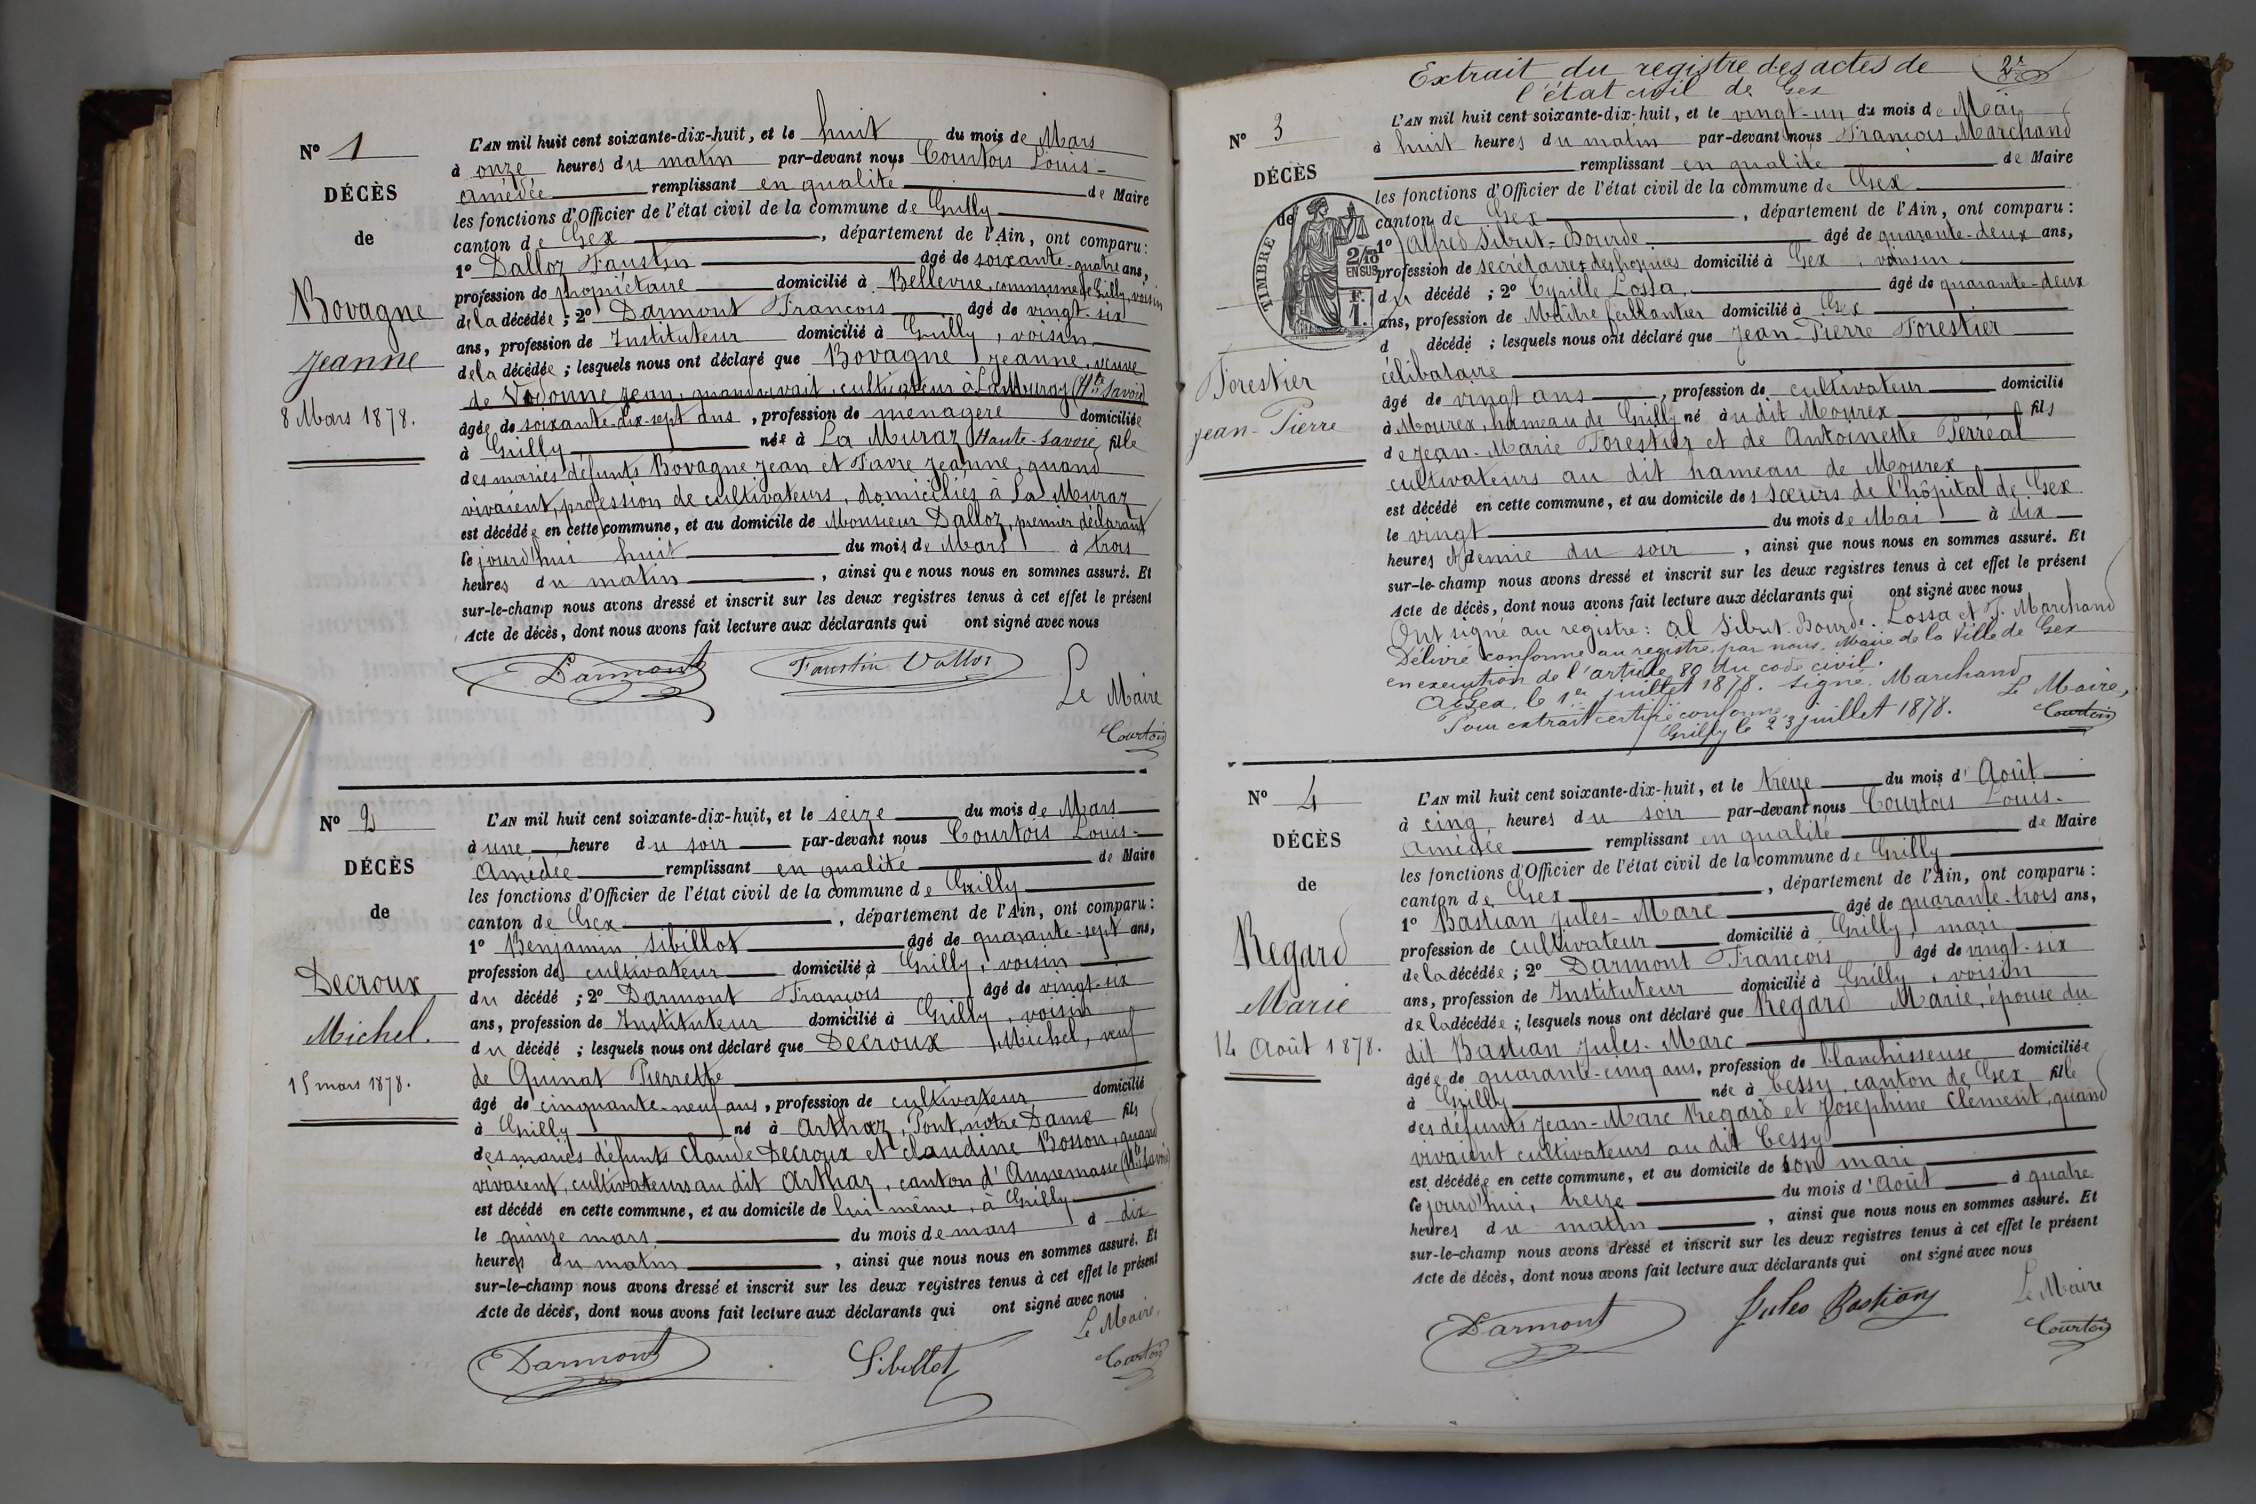 N° 1
DÉCÈS
de
Bovagne
Jeanne
8 Mars 1878.
L'AN mil huit cent soixante-dix-huit, et le huit du mois de Mars
à onze heures du matin par-devant nous Courtois Louis-
Amédée remplissant en qualité de Maire
les fonctions d'Officier de l'état civil de la commune de Grilly
canton de Gex, département de l'Ain, ont comparu:
1° Dalloz Faustin âgé de soixante-quatre ans,
profession de propriétaire domicilié à Bellevue, commune de Grilly, voisin
de la décédée; 2° Darmont François âgé de vingt-six
ans, profession de Instituteur domicilié à Grilly, voisin
de la décédée; lesquels nous ont déclaré que Bovagne Jeanne, veuve
de Vodonne Jean, quand vivait, cultivateur à La Muraz (Hte Savoie)
âgée de soixante-dix-sept ans, profession de ménagère domiciliée
à Grilly née à La Muraz Haute-Savoie, fille
des mariés défunts Bovagne Jean et Favre Jeanne, quand
vivaient, profession de cultivateurs, domiciliés à La Muraz
est décédée en cette commune, et au domicile de Monsieur Dalloz, premier déclarant
ce jourd'hui huit du mois de Mars à trois
heures du matin, ainsi que nous nous en sommes assuré. Et
sur-le-champ nous avons dressé et inscrit sur les deux registres tenus à cet effet le présent
Acte de décès, dont nous avons fait lecture aux déclarants qui ont signé avec nous
Darmont Faustin Dalloz Le Maire
Courtois
N° 2
DÉCÈS
de
Decroux
Michel.
15 mars 1878.
L'AN mil huit cent soixante-dix-huit, et le seize du mois de Mars
à une heure du soir par-devant nous Courtois Louis-
Amédée remplissant en qualité de Maire
les fonctions d'Officier de l'état civil de la commune de Grilly
canton de Gex, département de l'Ain, ont comparu:
1° Benjamin Sibillot âgé de quarante-sept ans,
profession de cultivateur domicilié à Grilly, voisin
du décédé; 2° Darmont François âgé de vingt-six
ans, profession de Instituteur domicilié à Grilly, voisin
du décédé; lesquels nous ont déclaré que Decroux Michel, veuf
de Quinat Pierrette
âgé de cinquante-neuf ans, profession de cultivateur domicilié
à Grilly né à Arthaz, Pont, notre Dame fils
des mariés défunts Claude Decroux et Claudine Bosson, quand
vivaient, cultivateurs au dit Arthaz, canton d'Annemasse (Hte Savoie)
est décédé en cette commune, et au domicile de lui-même, à Grilly
le quinze mars du mois de mars à dix
heures du matin, ainsi que nous nous en sommes assuré. Et
sur-le-champ nous avons dressé et inscrit sur les deux registres tenus à cet effet le présent
Acte de décès, dont nous avons fait lecture aux déclarants qui ont signé avec nous
Le Maire,
Darmont Sibillot Courtois
Extrait du registre des actes de
l'état civil de Gex
N° 3
DÉCÈS
de
TIMBRE
2/10
EN SUS
F.
1.
Forestier
Jean-Pierre
L'AN mil huit cent soixante-dix-huit, et le vingt-un du mois de Mai
à huit heures du matin par-devant nous François Marchand
remplissant en qualité de Maire
les fonctions d'Officier de l'état civil de la commune de Gex
canton de Gex, département de l'Ain, ont comparu:
1° Alfred Sibut-Bourde âgé de quarante-deux ans,
profession de secrétaire des hospices domicilié à Gex, voisin
du décédé; 2° Cyrille Lossa, âgé de quarante-deux
ans, profession de Maître ferblantier domicilié à Gex
d décédé; lesquels nous ont déclaré que Jean-Pierre Forestier
célibataire
âgé de vingt ans, profession de cultivateur domicilié
à Mourex, hameau de Grilly né au dit Mourex fils
de Jean-Marie Forestier et de Antoinette Perréal
cultivateurs au dit hameau de Mourex
est décédé en cette commune, et au domicile des sœurs de l'hôpital de Gex
le vingt du mois de Mai à dix
heures et demie du soir, ainsi que nous nous en sommes assuré. Et
sur-le-champ nous avons dressé et inscrit sur les deux registres tenus à cet effet le présent
Acte de décès, dont nous avons fait lecture aux déclarants qui ont signé avec nous
Ont signé au registre: Al Sibut-Bourde. Lossa et F. Marchand
Délivré conforme au registre, par nous, Maire de la Ville de Gex
en exécution de l'article 80 du code civil.
A Gex, le 1er juillet 1878. signé, Marchand
Pour extrait certifié conforme Le Maire,
Grilly le 23 juillet 1878. Courtois
N° 4
DÉCÈS
de
Regard
Marie
14 Août 1878.
L'AN mil huit cent soixante-dix-huit, et le treize du mois d'Août
à cinq heures du soir par-devant nous Courtois Louis-
Amédée remplissant en qualité de Maire
les fonctions d'Officier de l'état civil de la commune de Grilly
canton de Gex, département de l'Ain, ont comparu:
1° Bastian Jules-Marc âgé de quarante-trois ans,
profession de cultivateur domicilié à Grilly, mari
de la décédée; 2° Darmont François âgé de vingt-six
ans, profession de Instituteur domicilié à Grilly, voisin
de la décédée; lesquels nous ont déclaré que Regard Marie, épouse du
dit Bastian Jules-Marc
âgée de quarante-cinq ans, profession de blanchisseuse domiciliée
à Grilly née à Cessy, canton de Gex fille
des défunts Jean-Marc Regard et Joséphine Clément, quand
vivaient cultivateurs au dit Cessy
est décédée en cette commune, et au domicile de son mari
ce jourd'hui, treize du mois d'Août à quatre
heures du matin, ainsi que nous nous en sommes assuré. Et
sur-le-champ nous avons dressé et inscrit sur les deux registres tenus à cet effet le présent
Acte de décès, dont nous avons fait lecture aux déclarants qui ont signé avec nous
Le Maire
Darmont Jules Bastian Courtois